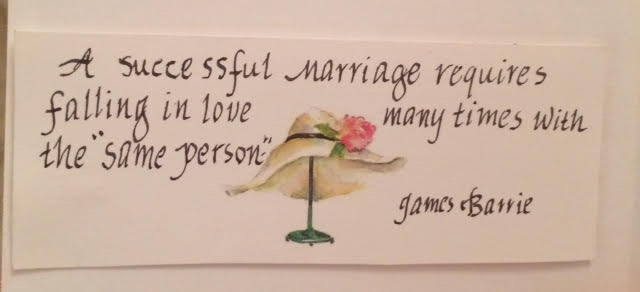 A successful marriage requires
falling in love many times with
the "same person"
James Barrie